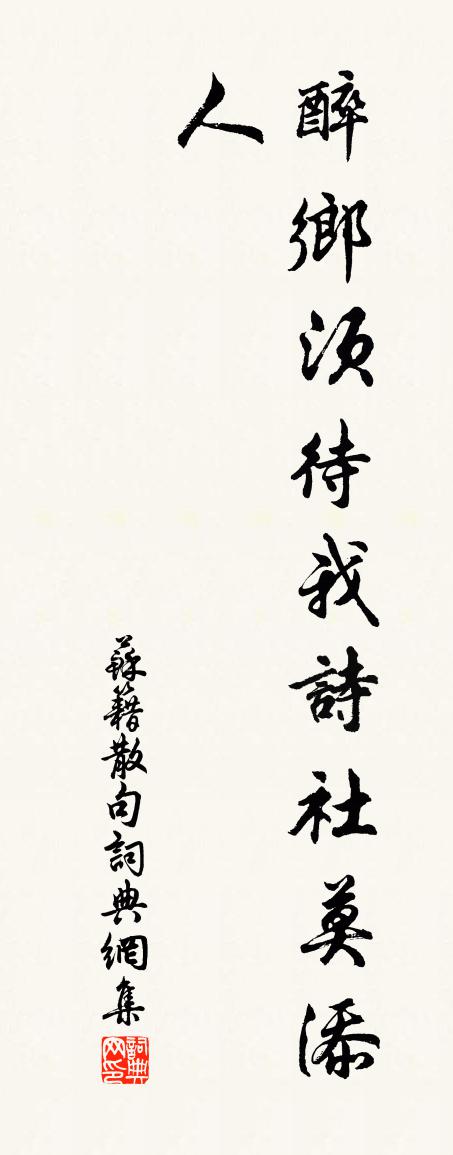 醉鄉須待我詩社莫添
人
蘇籍散句詞典網集
詞典网印